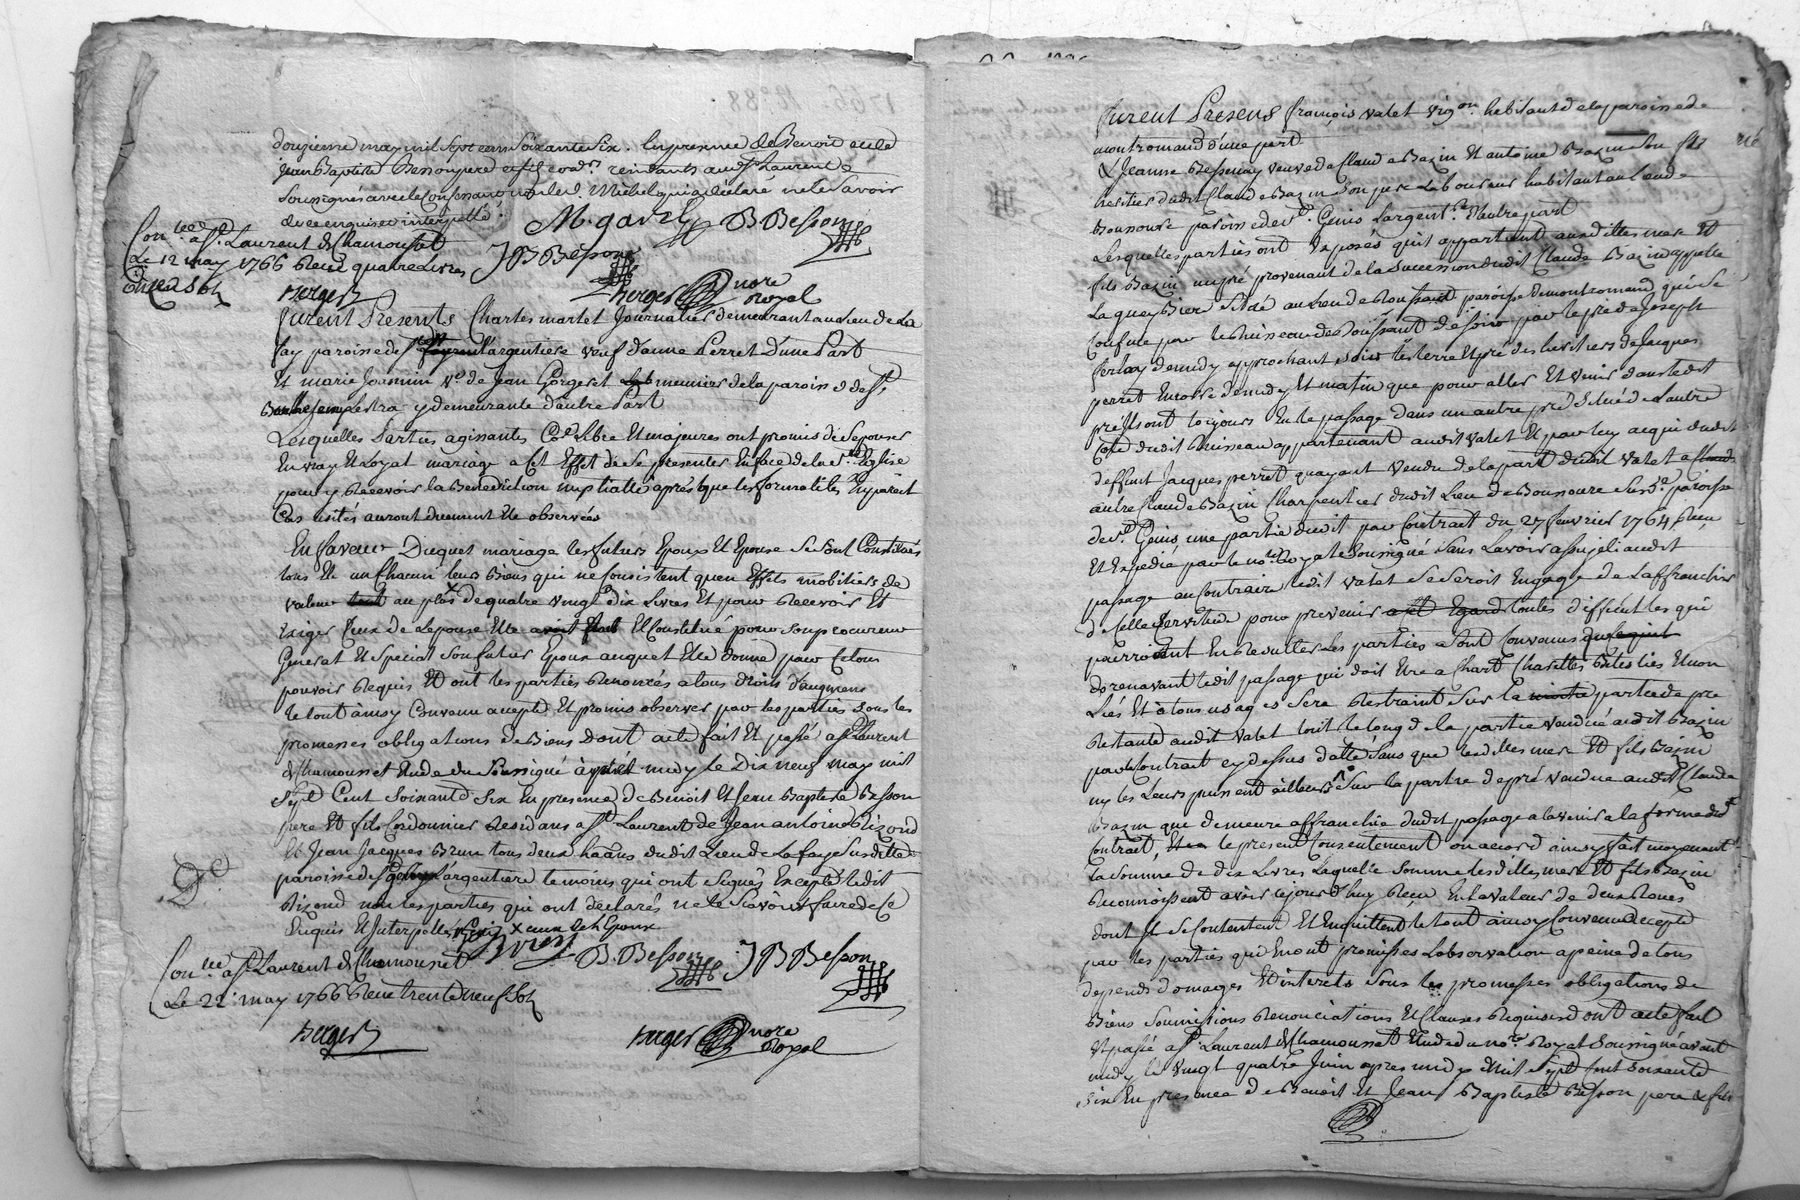 douzieme may mil sept cens soixante six. En presence de Benoit et de
jean Baptiste Besson pere et fils cord.rs residants aud. St Laurent
soussignés avec le confessant non led. Michel qui a déclaré ne le savoir
de ce enquis et interpellé.
M. gavel B. Besson
Con.lée a St. Laurent de Chamousset
Le 12 may 1766 Receu quatre livres
dix sols
JB Besson
Berger
Berger nore Royal
furent Presents Charles martet Journalier demeurant au lieu de La
fay paroisse de St l'argentiere veuf d'anne Perret D'une Part
Et marie Joannin ve. de Jean Gorgeret meunier de la paroisse de St.
y demeurante d'autre Part
Lesquelles Parties agissantes Libre Et majeures ont promis de Sepouser
En vray Et Loyal mariage a Cet Effet de Se presenter En face de la Ste Eglise
pour y Recevoir la Benediction nuptialle après que les formalités En pareil
Cas usités auront duement Eté observées
En faveur Duquel mariage les futurs Epoux Et Epouse Se Sont Constitués
tous Et un Chacun leurs Biens qui ne Consistent quen Effets mobiliers de
valeur au plus de quatre vingt dix Livres Et pour Recevoir Et
Exiger Ceux de Lepouse Elle a Constitué pour Son procureur
General Et Special Son futur Epoux auquel Elle donne pour Ce tous
pouvoir Requis Et ont les parties Renoncés a tous droits d'augmens
le tout ainsy Convenu accepté Et promis observer par les parties Sous les
promesses obligations de Biens Dont acte fait Et passé a St Laurent
de Chamousset Etude du Soussigné après midy le Dix neuf may mil
Sept Cent Soixante Six En presence de Benoit Et Jean Baptiste Besson
pere Et fils Cordonnier Residans a St Laurent de Jean antoine Bizond
Et Jean Jacques Brun tous deux habans dudit Lieu de La faye Susditte
paroisse de St l'argentiere temoins qui ont Signés Excepté ledit
Bizond non les parties qui ont déclarés ne le Scavoir faire de Ce
Enquis Et Interpellés x ceux de L'Epoux
Brun B. Besson JB Besson
Con.lée a St Laurent de Chamousset
Le 22 may 1766 Receu trente neuf Sols
Berger
Berger nore Royal
furent Presens françois valet vigon. habitant de la paroisse de
montromand d'une part
& Jeanne Bessenay veuve de Claude Bazin Et antoine Bazin Son fils
heritier dudit Claude Bazin Son pere Laboureur habitant au Lieu de
Bousoure paroisse de St. Genis Largent.re d'autre part
Lesquelles parties ont Exposés qu'il appartient ausdittes mere Et
fils Bazin un pré provenant de la Succession dudit Claude Bazin appelle
La quey Biere Situé au Lieu de paroisse de montromand qui Se
Confine par le Ruisseau de de Soir par le pré de Joseph
ferlay de midy approchant Soir les terre Et pré des heritiers de Jacques
perret Encorre de midy Et matin que pour aller Et venir dans ledit
pré ils ont toujours Eu le passage dans un autre pré Situé de L'autre
Coté dudit Ruisseau appartenant audit valet Et par luy acqui dudit
deffunt Jacques perret quayant vendu de la part dudit valet a
autre Claude Bazin Charpentier dudit Lieu de Bousoure Susd.e paroisse
de St. Genis, une partie dudit par Contract du 27 fevrier 1764 Receu
Et Expedié par le no.re Royal Soussigné Sans Lavoir assujeti audit
passage au Contraire ledit valet Se Seroit Engagé de Laffranchir
d'icelle Servitude pour prevenir toutes difficultes qui
pourroient En Resulter Les parties Sont Convenus
dorenavant ledit passage qui doit Etre a Chart Charettes Betes liés Et non
Liés Et a tous usages Sera Restraint Sur la partie de pré
Restante audit valet tout le long de la partie vendue audit Bazin
par Contract cy dessus datté Sans que lesdittes mere Et fils Bazin
ny les Leurs puissent ailleurs Sur la partie de pré vendue audit Claude
Bazin qui demeure affranchie dudit passage a lavenir a la forme dudt
Contract, le present Consentement ou acord ainsy fait moyenant
La Somme de dix Livres Laquelle Somme lesdittes mere Et fils Bazin
Reconnoissent avoir cejourd'huy Receu En la valeur de deux
dont il Se Contentent Et En quittent le tout ainsy Convenu accepté
par les parties qui En ont promisses Lobservation a peine de tous
depends domages Et interets Sous les promesses obligations de
Biens Soumissions Renonciations Et Clauses Requises dont acte fait
Et passé a St. Laurent de Chamousset Etude du no.re Royal Soussigné avant
midy le vingt quatre Juin apres midy Mil Sept Cent Soixante
Six En presence de Benoit Et Jean Baptiste Besson pere & fils